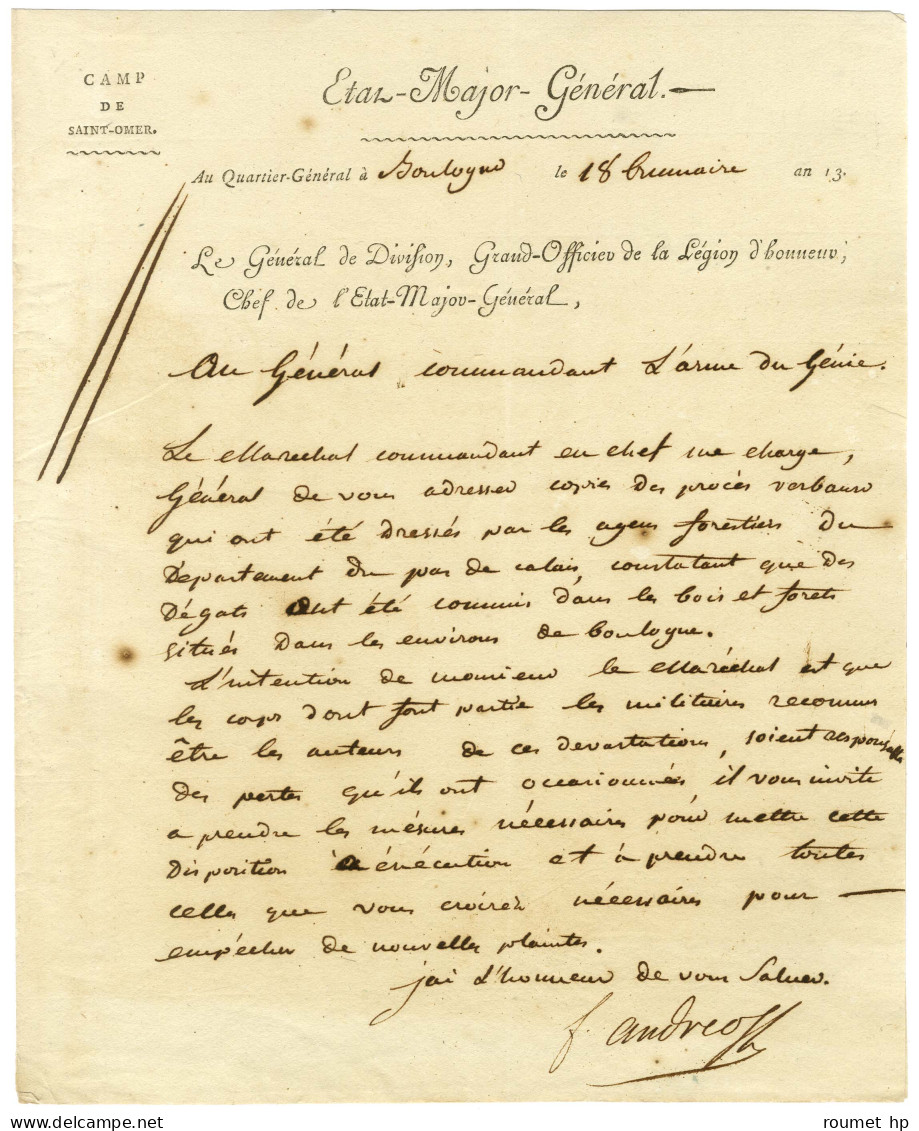 CAMP
DE
SAINT-OMER.
Etat-Major-Général.
Au Quartier-Général à Boulogne le 18 brumaire an 13.
Le Général de Division, Grand-Officier de la Légion d'honneur,
Chef de l'Etat-Major-Général,
Au Général commandant L'arme du Génie.
Le Maréchal commandant en chef me charge,
Général de vous adresser copies des procès verbaux
qui ont été dressés par les agens forestiers du
Département du pas de calais, constatant que des
Dégats ont été commis dans les bois et forets
situés dans les environs de boulogne.
L'intention de monsieur le Maréchal est que
les corps dont font partie les militaires reconnus
être les auteurs de ces devastations, soient responsables
des pertes qu'ils ont occasionnées, il vous invite
a prendre les mésures nécessaires pour mettre cette
disposition a exécution et à prendre toutes
celles que vous croirez nécessaires pour
empécher de nouvelles plaintes.
jai l'honneur de vous Saluer.
f. andreossy
roumet hp